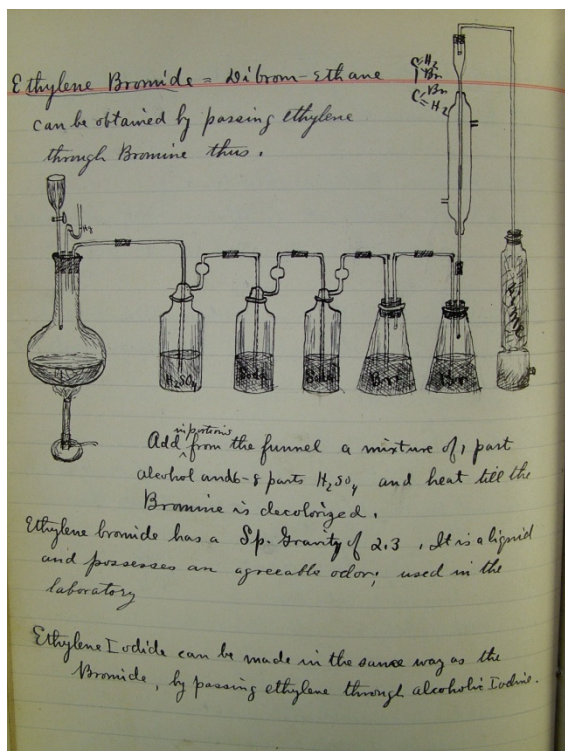 Ethylene Bromide = Dibrom-ethane
CH2
Br
Br
C=H2
can be obtained by passing ethylene
through Bromine thus.
Hg
H2SO4
Soda
Soda
Br
Add in portions from the funnel a mixture of 1 part
alcohol and 6-8 parts H2SO4 and heat till the
Bromine is decolorized.
Ethylene bromide has a Sp. Gravity of 2.3. It is a liquid
and possesses an agreeable odor; used in the
laboratory
Ethylene Iodide can be made in the same way as the
Bromide, by passing ethylene through alcoholic Iodine.